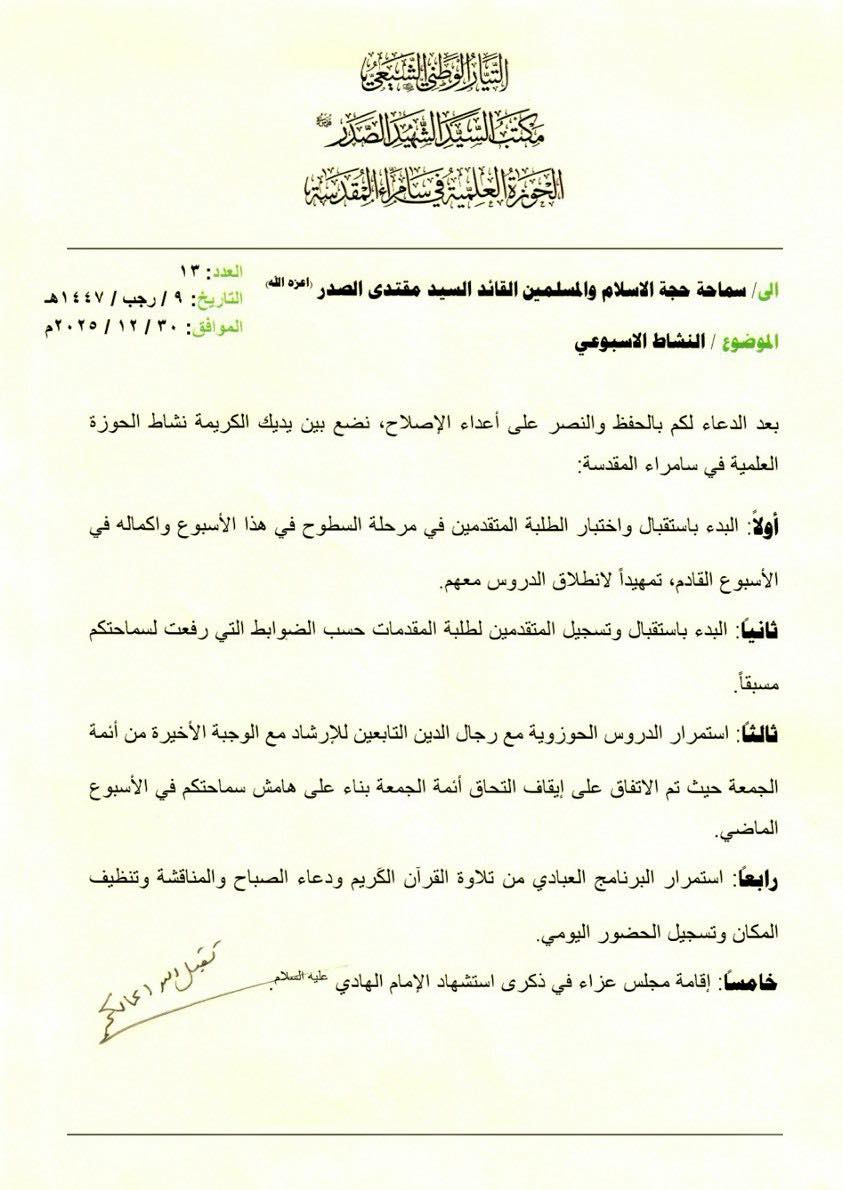 التيار الوطني الشيعي
مكتب السيد الشهيد الصدر
الحوزة العلمية في سامراء المقدسة
العدد: ١٣
التاريخ: ٩ / رجب / ١٤٤٧هـ
الموافق: ٣٠ / ١٢ / ٢٠٢٥م
الى/ سماحة حجة الاسلام والمسلمين القائد السيد مقتدى الصدر (اعزه الله)
الموضوع / النشاط الاسبوعي
بعد الدعاء لكم بالحفظ والنصر على أعداء الإصلاح، نضع بين يديك الكريمة نشاط الحوزة
العلمية في سامراء المقدسة:
أولاً: البدء باستقبال واختبار الطلبة المتقدمين في مرحلة السطوح في هذا الأسبوع واكماله في
الأسبوع القادم، تمهيداً لانطلاق الدروس معهم.
ثانياً: البدء باستقبال وتسجيل المتقدمين لطلبة المقدمات حسب الضوابط التي رفعت لسماحتكم
مسبقاً.
ثالثاً: استمرار الدروس الحوزوية مع رجال الدين التابعين للإرشاد مع الوجبة الأخيرة من أئمة
الجمعة حيث تم الاتفاق على إيقاف التحاق أئمة الجمعة بناء على هامش سماحتكم في الأسبوع
الماضي.
رابعاً: استمرار البرنامج العبادي من تلاوة القرآن الكريم ودعاء الصباح والمناقشة وتنظيف
المكان وتسجيل الحضور اليومي.
خامساً: إقامة مجلس عزاء في ذكرى استشهاد الإمام الهادي عليه السلام.
تقبل الله اعمالكم